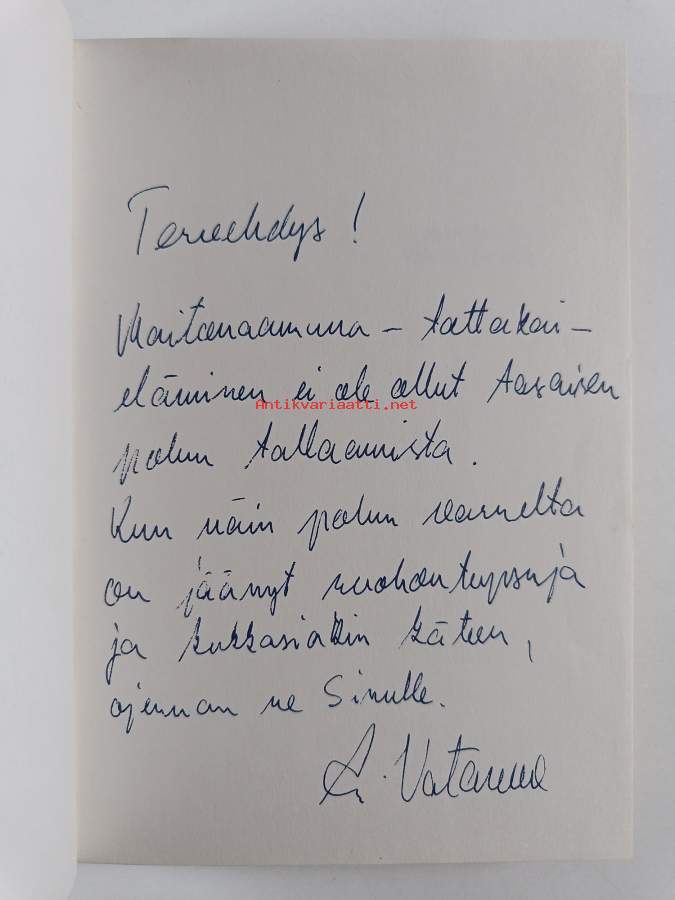 Tervehdys!
– tattakai –
eläminen ei ole ollut tasaisen
Antikvariaatti.net
polun tallaamista.
Kun näin polun varrelta
on jäänyt ruohontupsuja
ja kukkasiakin käteen,
ojennan ne Sinulle.